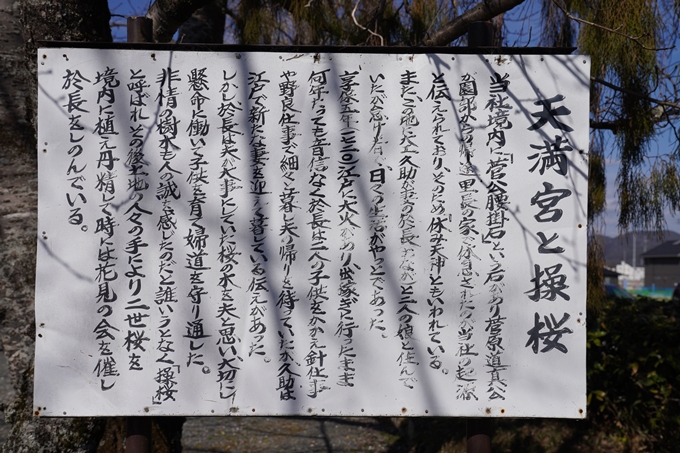 天満宮と操桜
当社境内に「菅公腰掛石」という石があり菅原道真公
が園部からの帰途里長の家で休まれたのが当社の起源
と伝えられており、そのため休み天神とも言われている。
またこの地に大工久助が妻の於長と三人の娘と住んで
いたが怠け者で日々の生活がやっとであった。
享保五年(一七二〇)江戸に大火があり出稼ぎに行ったまま
何年たっても音信なく於長は三人の子供をかかえ針仕事
や野良仕事で細々と暮し夫の帰りを待っていたが久助は
江戸で新たな妻を迎えて暮している伝えがあった。
しかし於長は夫が大事にしていた桜の木を夫と思い大切にし
懸命に働いて子供を育て婦道を守り通した。
非情の樹木も人の誠を感じたのだと誰いうとなく「操桜」
と呼ばれ、その後土地の人々の手により二世桜を
境内に植え丹精して時には花見の会を催し
於長をしのんでいる。